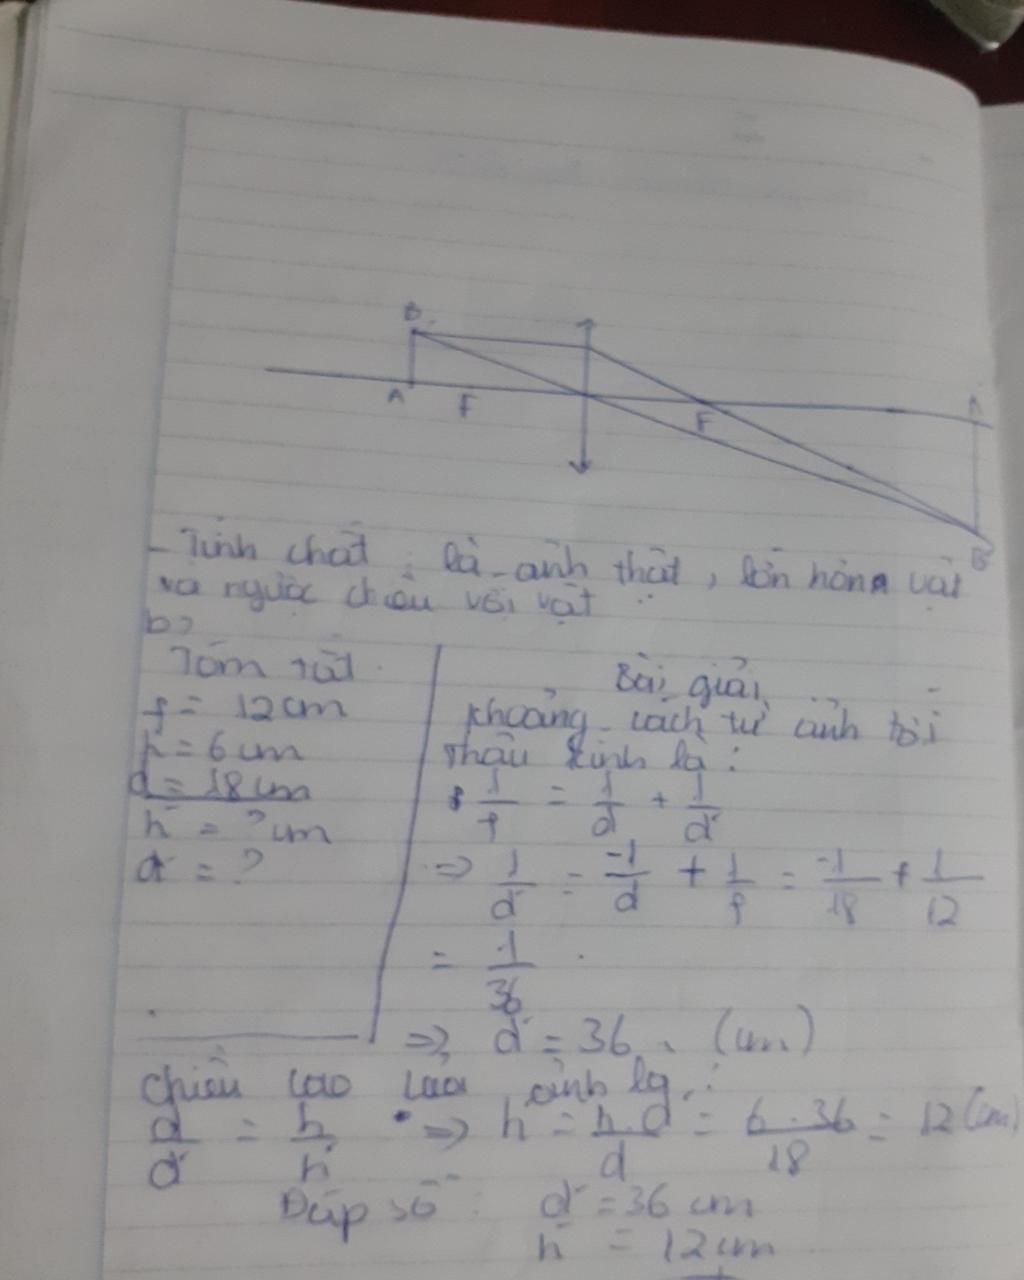 B
A F F A'
B'
- Tính chất : là ảnh thật, lớn hơn vật
và ngược chiều với vật
b>
Tóm tắt
f = 12 cm
h = 6 cm
d = 18 cm
h' = ? cm
d' = ?
Bài giải
Khoảng cách từ ảnh tới
thấu kính là :
1/f = 1/d + 1/d'
=> 1/d' = -1/d + 1/f = -1/18 + 1/12
= 1/36
=> d' = 36 (cm)
Chiều cao của ảnh là :
d/d' = h/h' => h' = h.d'/d = 6.36/18 = 12 (cm)
Đáp số : d' = 36 cm
h' = 12 cm